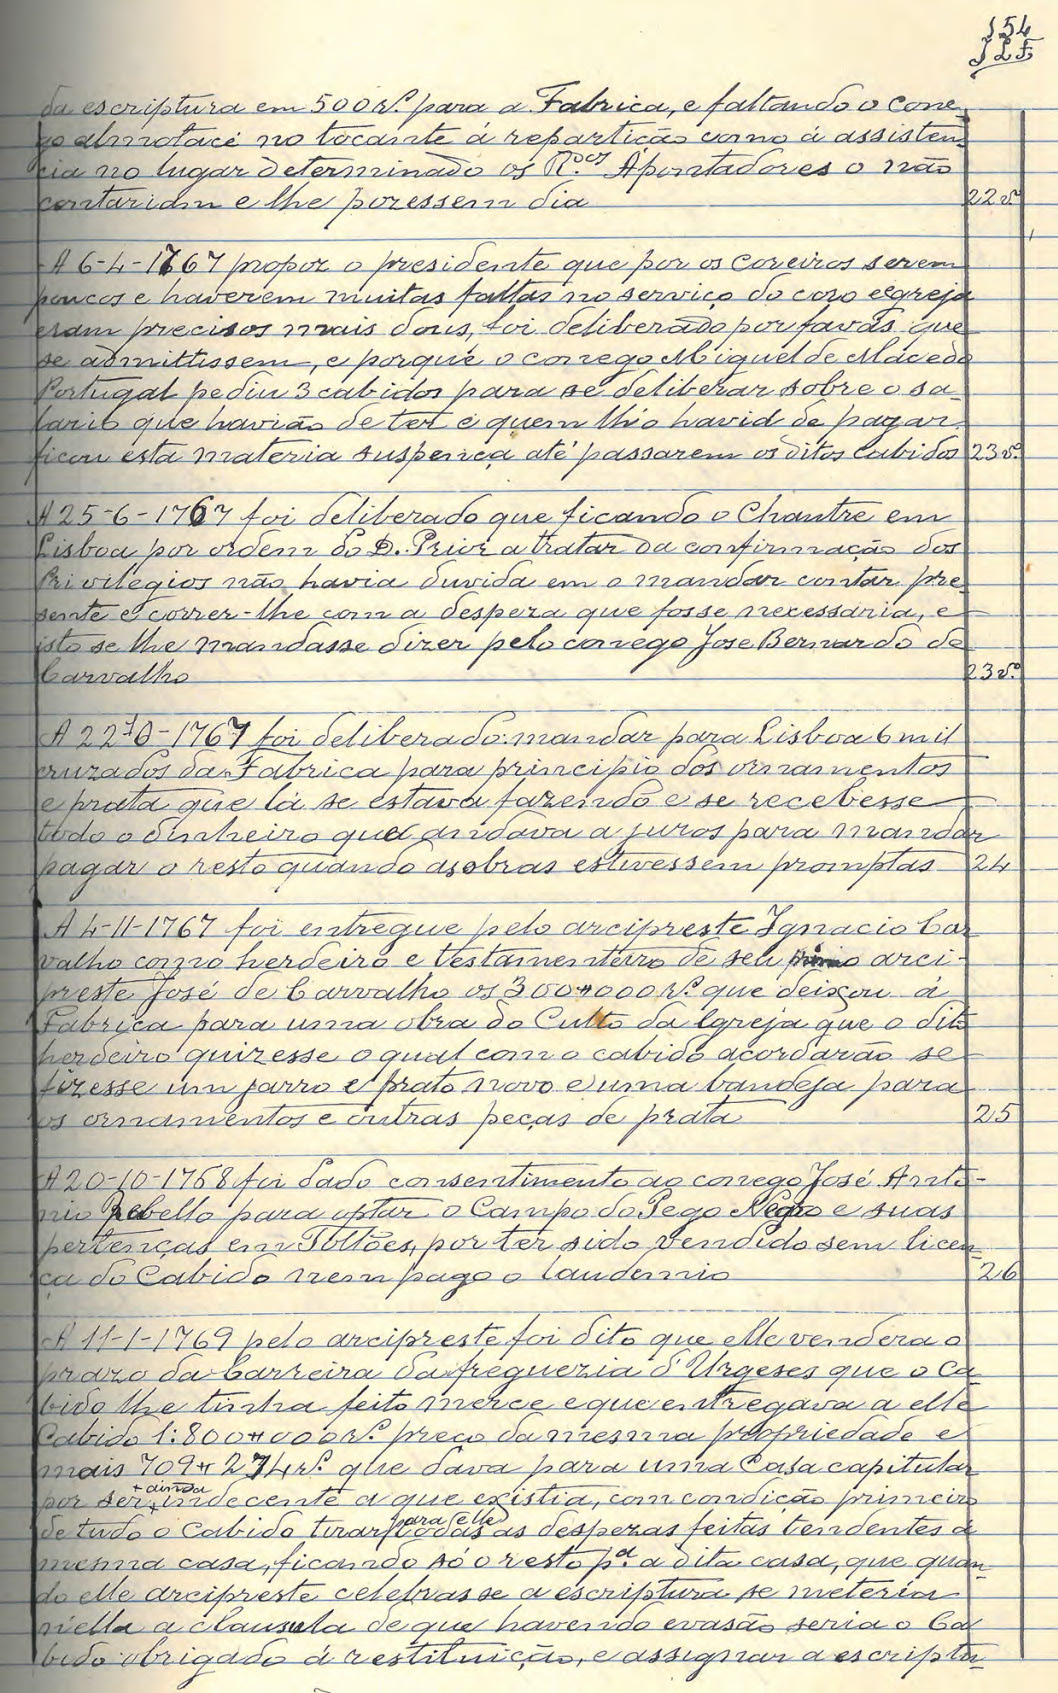 154
da escriptura em 500 rs. para a Fabrica, e faltando o cone-
go almotacé no tocante á repartição como á assisten-
cia no lugar determinado os R.dos Apontadores o não
contariam e lhe pozessem dia 22 v.º
A 6-4-1767 propoz o presidente que por os coreiros serem
poucos e haverem muitas faltas no serviço do coro e egreja
eram precisos mais dous, foi deliberado por favas que
se admittissem, e porque o conego Miguel de Macedo
Portugal pediu 3 cabidos para se deliberar sobre o sa-
lario que havião de ter e quem lh'o havia de pagar,
ficou esta materia suspença até passarem os ditos cabidos 23 v.º
A 25-6-1767 foi deliberado que ficando o Chantre em
Lisboa por ordem do D. Prior a tratar da confirmação dos
Privilegios não havia duvida em o mandar contar pre-
sente e correr-lhe com a despeza que fosse necessaria, e
isto se lhe mandasse dizer pelo conego Jose Bernardo de
Carvalho 23 v.º
A 22-10-1767 foi deliberado mandar para Lisboa 6 mil
cruzados da Fabrica para principio dos ornamentos
e prata que lá se estava fazendo e se recebesse
todo o dinheiro que andava a juros para mandar
pagar o resto quando as obras estivessem promptas 24
A 4-11-1767 foi entregue pelo arcipreste Ignacio Car-
valho como herdeiro e testamenteiro de seu primo arci-
preste José de Carvalho os 300#000 rs. que deixou á
Fabrica para uma obra do Culto da Igreja que o dito
herdeiro quizesse o qual com o cabido acordarão se
fizesse um jarro e prato novo e uma bandeja para
os ornamentos e outras peças de prata 25
A 20-10-1768 foi dado consentimento ao conego José Anto-
nio Rebello para optar o Campo do Pego Negro e suas
pertenças em Toltões, por ter sido vendido sem licen-
ça do Cabido nem pago o laudemio 26
A 11-1-1769 pelo arcipreste foi dito que elle vendera o
prazo da Carreira da freguezia d'Urgeses que o Ca-
bido lhe tinha feito merce e que entregava a elle
Cabido 1:800#000 rs. preço da mesma propriedade e
mais 709#274 rs. que dava para uma Casa capitular
por ser + ainda + indecente a que existia, com condição primeiro
de tudo o Cabido tirar para elle todas as despezas feitas tendentes á
mesma casa, ficando só o resto p.ª a dita casa, que quan-
do elle arcipreste celebrasse a escriptura se meteria
n'ella a clausula de que havendo evasão seria o Ca-
bido obrigado á restituição, e assignar a escriptu-